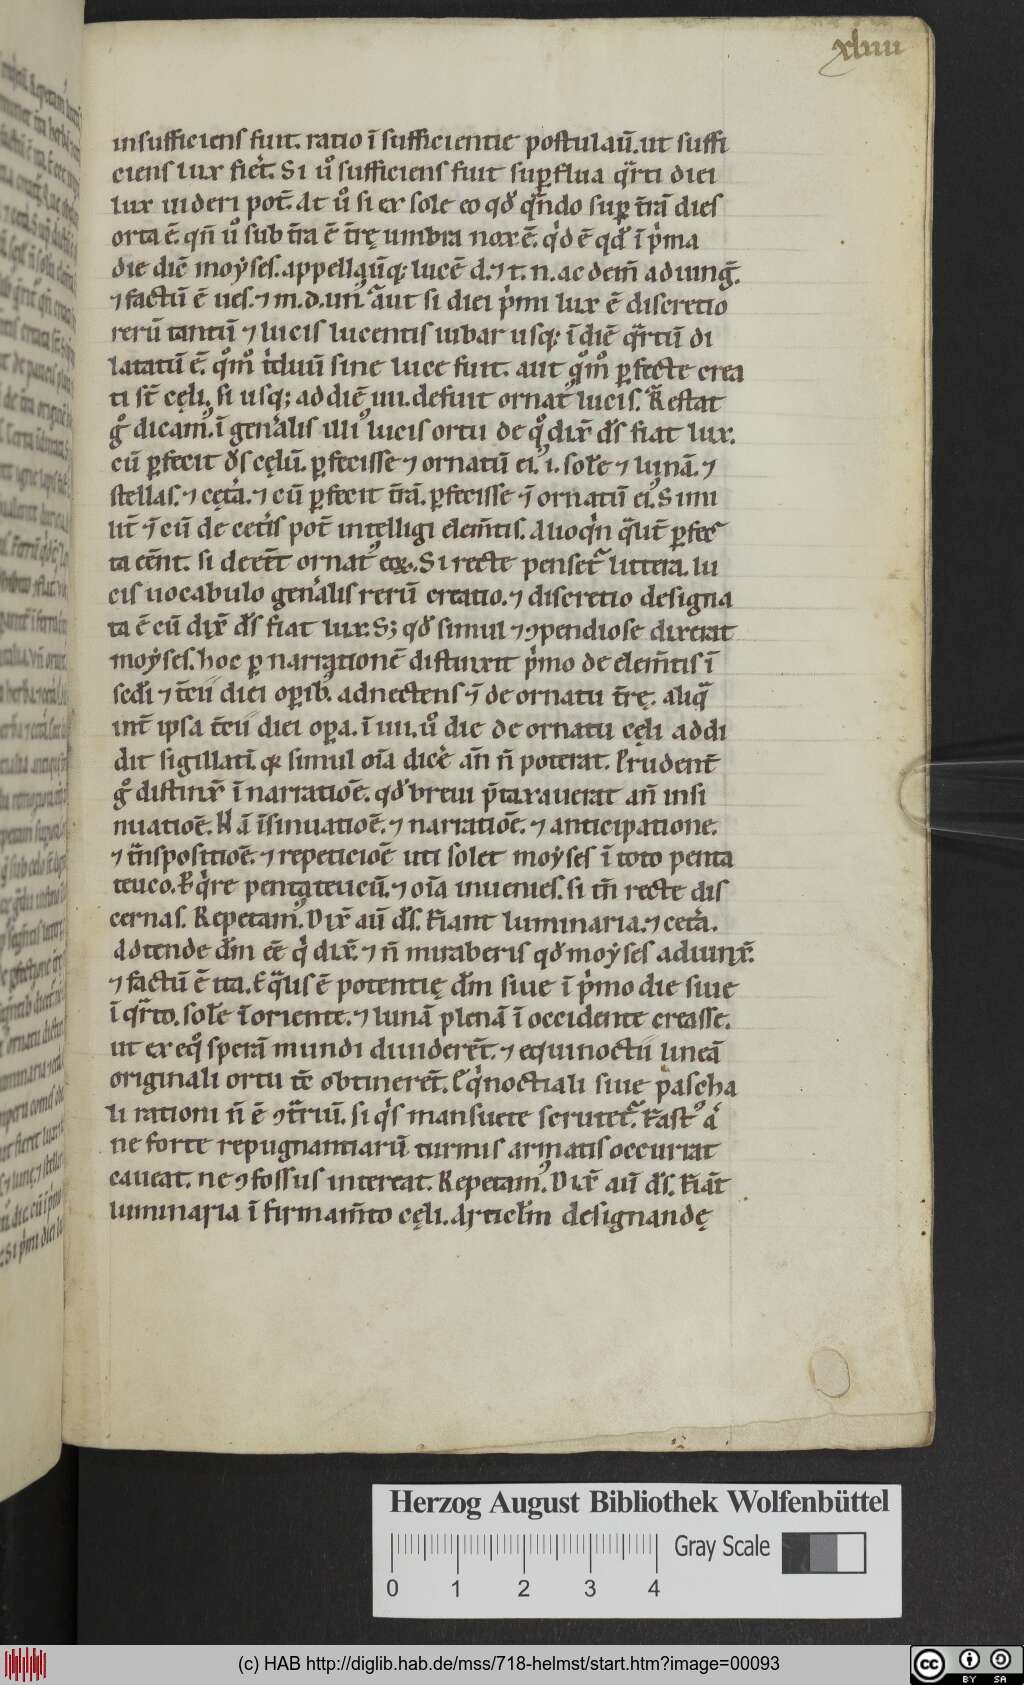 xliiii
insufficiens fuit. ratio ī sufficientie postulaū. ut suffi
ciens lux fieret. Si ũ sufficiens fuit sup̱flua q̃rti diei
lux uideri pot̄. At ũ si ex sole eo qđ qn̄do sup̱ t̄rā dies
orta ē. qn̄ ũ sub t̄ra ē t̄rę umbra nox ē. qd ē qđ ī p̍ma
die diē moẏses. appellaūq; lucē d. ⁊ t. n. ac dem̄ adiung̃.
⁊ factū ē ues. ⁊ m. d. un᷒. Aut si diei p̍mi lux ē discretio
rerū tantū ⁊ lucis lucentis iubar usq; ī diē q̃rtū di
latatū ē. qm̊ t̍duū sine luce fuit. aut qm̊ p̱fecte crea
ti st̄ cęli, si usq; ad diē iiii. defuit ornat᷒ lucis. Restat
g̊ dicam᷒. ī gen̍alis illi᷒ lucis ortu de q̊ dix̄ ds̄ fiat lux.
cū p̱fecit ds̄ cęlū. p̱fecisse ⁊ ornatū ei᷒. i. solē ⁊ lunā. ⁊
stellas. ⁊ cęt̍a. ⁊ cū p̱fecit t̄rā. p̱fecisse ⁊ ornatū ei᷒. Simi
lit̄ ⁊ cū de cet̍is pot̄ intelligi elem̄tis. Alioq̍n q̍lit̄ p̱fec
ta eēnt. si deeēt ornat᷒ eoꝝ. Si recte penset᷑ littera. lu
cis uocabulo gen̍alis rerū creatio. ⁊ discretio designa
ta ē cū dix̄ ds̄ fiat lux. S; qđ simul ⁊ ꝯpendiose dixerat
moẏses. hoc p̱ narrationē distinxit p̍mo de elem̄tis ī
sedi ⁊ t̄cii diei op̱ib᷒. adnectens ⁊ de ornatu t̄rę. aliq̃
int̄ ipsa t̄cii diei op̱a. ī iiii. ũ die de ornatu cęli addi
dit sigillatī. q simul oīa dicē an̄ n̄ poterat. Prudent̄
g̊ distinx̄ ī narratiōe. qđ breui p̄taxauerat an̄ insi
nuatiōe. Nā īsinuatiōe. ⁊ narratiōe. ⁊ anticipatione.
⁊ t̃nspositiōe. ⁊ repeticiōe uti solet moẏses ī toto penta
teuco. Pq̍re pentateucū. ⁊ oīa inuenies. si tn̄ recte dis
cernas. Repetam᷒. Dix̄ aū ds̄. Fiant luminaria. ⁊ cet̍a.
Adtende dm̄ eē q̍ dix̄. ⁊ n̄ miraberis qđ moẏses adiunx̄.
⁊ factū ē ita. Eq̃lis ē potentię dm̄ siue ī p̍mo die siue
ī q̃rto. solē ī oriente. ⁊ lunā plenā ī occidente creasse.
ut ex eq̊ sperā mundi diuiderēt. ⁊ equinoctii lineā
originali ortu tc̄ obtinerēt. Eq̍noctiali siue pascha
li rationi n̄ ē ꝯt̃riū. si q̍s mansuete scrutet᷑. Fast᷒ a̍
ne forte repugnantiarū turmis armatis occurrat
caueat. ne ꝯfossus intereat. Repetam᷒. Dix̄ aū ds̄. Fiāt
luminaria ī firmam̄to cęli. Articl̄m designandę
Herzog August Bibliothek Wolfenbüttel
Gray Scale
0 1 2 3 4
(c) HAB http://diglib.hab.de/mss/718-helmst/start.htm?image=00093
cc BY SA